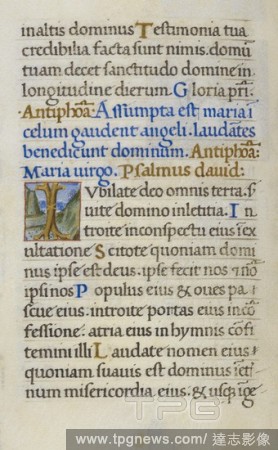 in altis dominus Testimonia tua
credibilia facta sunt nimis. domū
tuam decet sanctitudo domine in
longitudine dierum. Gloria pri.
Antiphōā. Assumpta est maria i
celum gaudent angeli. laudātes
benedicunt dominum. Antiphōā.
Maria virgo. Psalmus dauid.
IVbilate deo omnis terra. s
uite domino in letitia. In
troite in conspectu eius i ex
ultatione Scitote quoniam domi
nus ipse est deus. ipse fecit nos & nō
ipsi nos Populus eius & oues pa
scue eius. introite portas eius in cō
fessione. atria eius in hymnis cōfi
temini illi Laudate nomen eius
quoniam suauis est dominus i eti
num misericordia eius. & usqꝫ i ge
TPG
www.tpgnews.com / 達志影像